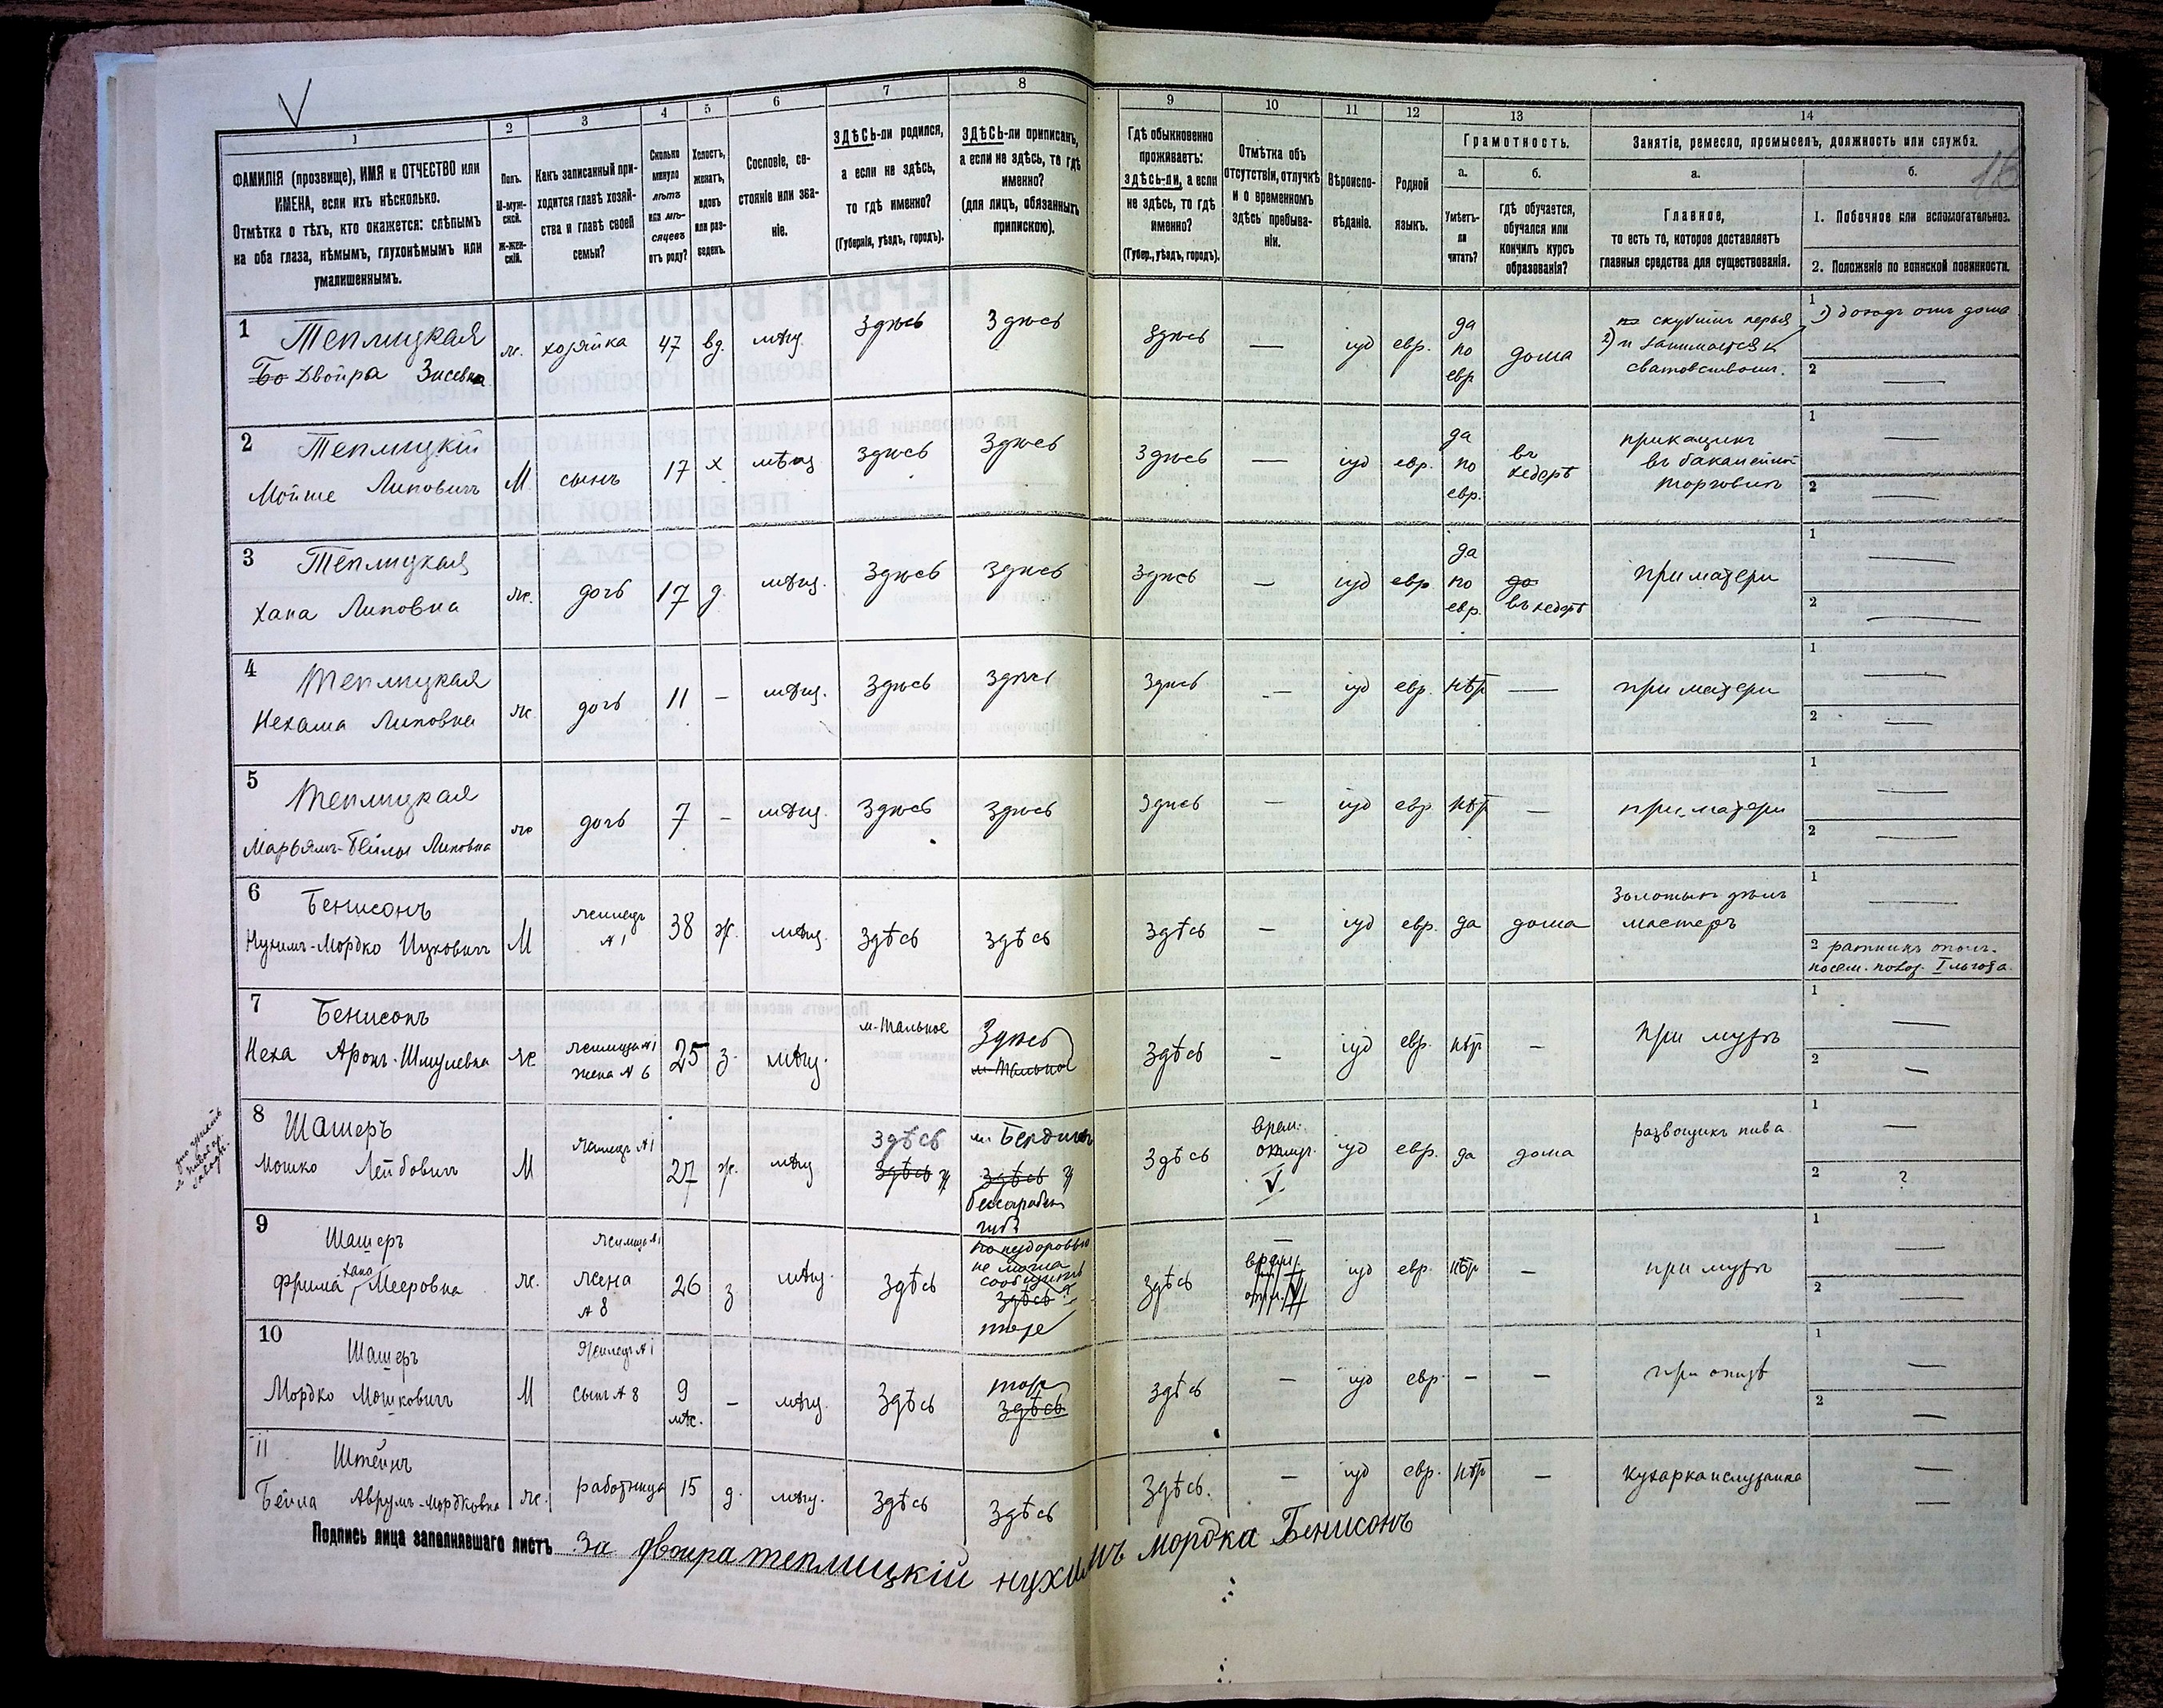 1 2 3 4 5 6 7 8 9 10 11 12 13 14
ФАМИЛІЯ (прозвище), ИМЯ и ОТЧЕСТВО или
ИМЕНА, если ихъ нѣсколько.
Отмѣтка о тѣхъ, кто окажется: слѣпымъ
на оба глаза, нѣмымъ, глухонѣмымъ или
умалишеннымъ.
Полъ.
М-муж-
ской.
Ж-жен-
скій.
Какъ записанный при-
ходится главѣ хозяй-
ства и главѣ своей
семьи?
Сколько
минуло
лѣтъ
или мѣ-
сяцевъ
отъ роду?
Холостъ,
женатъ,
вдовъ
или раз-
веденъ.
Сословіе, со-
стояніе или зва-
ніе.
ЗДѢСЬ-ли родился,
а если не здѣсь,
то гдѣ именно?
(Губернія, уѣздъ, городъ).
ЗДѢСЬ-ли приписанъ,
а если не здѣсь, то гдѣ
именно?
(для лицъ, обязанныхъ
припискою).
Гдѣ обыкновенно
проживаетъ:
здѣсь-ли, а если
не здѣсь, то гдѣ
именно?
(Губер., уѣздъ, городъ).
Отмѣтка объ
отсутствіи, отлучкѣ
и о временномъ
здѣсь пребыва-
ніи.
Вѣроиспо-
вѣданіе.
Родной
языкъ.
Грамотность.
а.
Умѣетъ-
ли
читать?
б.
гдѣ обучается,
обучался или
кончилъ курсъ
образованія?
Занятіе, ремесло, промыселъ, должность или служба.
а.
Главное,
то есть то, которое доставляетъ
главныя средства для существованія.
б.
1. Побочное или вспомогательное.
2. Положеніе по воинской повинности.
1 Теплицкая
Бо Двойра Зисевна
ж. хозяйка 47 вд. мѣщ. Здѣсь Здѣсь Здѣсь — іуд евр.
да
по
евр
дома
скубетъ перья
2) и занимается
сватовствомъ.
1 1) доходъ отъ дома
2 —
2 Теплицкій
Мойше Липовичъ
М сынъ 17 х мѣщ Здѣсь Здѣсь Здѣсь — іуд евр.
да
по
евр.
въ
хедерѣ
прикащикъ
въ бакалейной
торговли
1 —
2 —
3 Теплицкая
Хана Липовна
ж. дочь 17 д. мѣщ. Здѣсь Здѣсь Здѣсь — іуд евр
да
по
евр.
до
въ хедерѣ
при матери
1 —
2 —
4 Теплицкая
Нехама Липовна
ж. дочь 11 — мѣщ. Здѣсь Здѣсь Здѣсь — іуд евр. нѣт — при матери
1 —
2 —
5 Теплицкая
Марьямъ-Бейла Липовна
ж дочь 7 — мѣщ. Здѣсь Здѣсь Здѣсь — іуд евр нѣт — при матери
1 —
2 —
6 Бенисонъ
Нухимъ-Мордко Ицковичъ
М
жилецъ
№ 1
38 ж. мѣщ. Здѣсь здѣсь здѣсь — іуд евр да дома
Золотыхъ дѣлъ
мастеръ
1 —
2 ратникъ ополч.
I льгота.
7 Бенисонъ
Неха Аронъ-Шмулевна
ж
жилица № 1
жена № 6
25 з. мѣщ. м. Тальное
Здѣсь
м. Тальное
Здѣсь — іуд евр. нѣт — при мужѣ
1 —
2 —
8 Шашеръ
Мошко Лейбовичъ
М жилецъ № 1 27 ж. мѣщ
Здѣсь
Здѣсь
Здѣсь
Бессарабск
губ.
Здѣсь
врем.
отлуч.
V
іуд евр. да дома развощикъ пива
1 —
2 ?
9 Шашеръ
Хана
Фрима Мееровна
ж.
жилица № 1
жена
№ 8
26 з мѣщ. Здѣсь
по нездоровью
не могла
сообщить
здѣсь
тоже
Здѣсь
времн.
отл. V
іуд евр. нѣт — при мужѣ
1 —
2 —
10 Шашеръ
Мордко Мошковичъ
М
Жилецъ № 1
сынъ № 8
9
мѣс.
— мѣщ. Здѣсь
тоже
здѣсь
Здѣсь — іуд евр. — — при отцѣ
1 —
2 —
11 Штейнъ
Бейла Аврумъ-Мордковна
ж. работница 15 д. мѣщ. Здѣсь Здѣсь Здѣсь. — іуд евр. нѣт — кухарка и служанка
—
—
Подпись лица заполнявшаго листъ За двоира теплицкій нухимъ мордка Бенисонъ